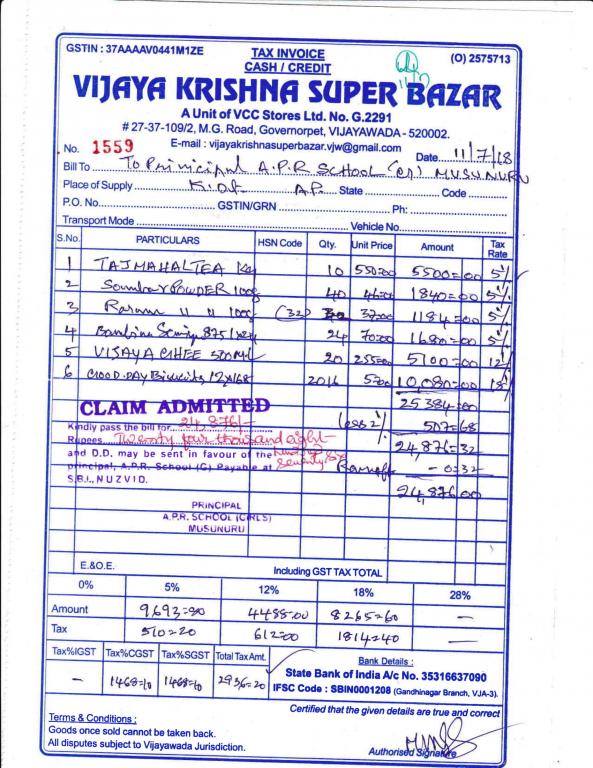 GSTIN : 37AAAAV0441M1ZE
TAX INVOICE
CASH / CREDIT
(O) 2575713
VIJAYA KRISHNA SUPER BAZAR
A Unit of VCC Stores Ltd. No. G.2291
# 27-37-109/2, M.G. Road, Governorpet, VIJAYAWADA - 520002.
E-mail : vijayakrishnasuperbazar.vjw@gmail.com
No. 1559 Date 11/7/18
Bill To To Prinicipal A.P.R SCHOOL (G) MUSUNURU
Place of Supply A.P. State Code
P.O. No. GSTIN/GRN Ph:
Transport Mode Vehicle No.
S.No. PARTICULARS HSN Code Qty. Unit Price Amount Tax Rate
1 TAJMAHAL TEA Kg 10 550=00 5500=00 5%
2 Sambar POWDER 100g 40 46=00 1840=00 5%
3 Rasam " " 100g (32) 37=00 1184=00 5%
4 Bambino 875 24 70=00 1680=00 5%
5 VIJAYA GHEE 500ML 20 255=00 5100=00 12%
6 GOOD.DAY Biscuits 12x168 2016 5=00 10,080=00 18%
25384=00
CLAIM ADMITTED
Kindly pass the bill for 24,876/- (less 2% 507=68
Rupees Twenty four thousand eight hundred seventy six 24,876=32
and D.D. may be sent in favour of the
principal, A.P.R. School (G) Payable at - 0=32
S.B.I., NUZVID. 24,876=00
PRINCIPAL
A.P.R. SCHOOL (GIRLS)
MUSUNURU
E.&O.E. Including GST TAX TOTAL
0% 5% 12% 18% 28%
Amount 9,693=80 4488=00 8265=60 —
Tax 510=20 612=00 1814=40 —
Tax%IGST Tax%CGST Tax%SGST Total Tax Amt.
Bank Details :
State Bank of India A/c No. 35316637090
- 1468=10 1468=10 2936=20
IFSC Code : SBIN0001208 (Gandhinagar Branch, VJA-3).
Certified that the given details are true and correct
Terms & Conditions :
Goods once sold cannot be taken back.
All disputes subject to Vijayawada Jurisdiction.
Authorised Signature